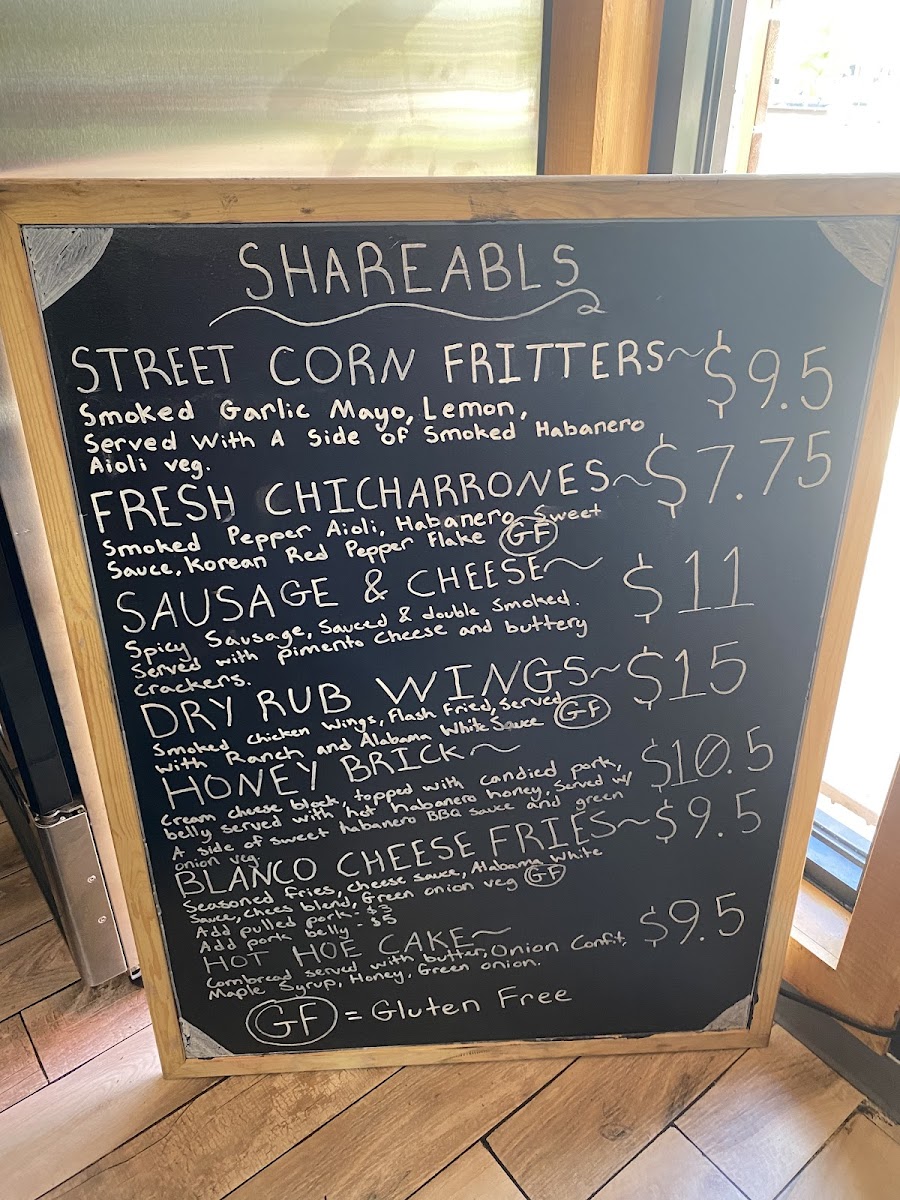 SHAREABLS
STREET CORN FRITTERS~ $9.5
Smoked Garlic Mayo, Lemon,
Served With A Side of Smoked Habanero
Aioli veg.
FRESH CHICHARRONES~ $7.75
Smoked Pepper Aioli, Habanero Sweet
Sauce, Korean Red Pepper Flake GF
SAUSAGE & CHEESE~ $11
Spicy Sausage, Sauced & double Smoked.
Served with pimento cheese and buttery
crackers.
DRY RUB WINGS~ $15
Smoked Chicken Wings, Flash Fried, Served
with Ranch and Alabama White Sauce GF
HONEY BRICK~ $10.5
Cream cheese block, topped with candied pork,
belly served with hot habanero honey, Served w/
A side of sweet habanero BBQ sauce and green
onion veg.
BLANCO CHEESE FRIES~ $9.5
Seasoned fries, cheese sauce, Alabama White
Sauce, chees blend, Green onion veg GF
Add pulled pork - $3
Add pork belly - $5
HOT HOE CAKE~ $9.5
Cornbread served with butter, Onion Confit,
Maple Syrup, Honey, Green onion.
GF = Gluten Free